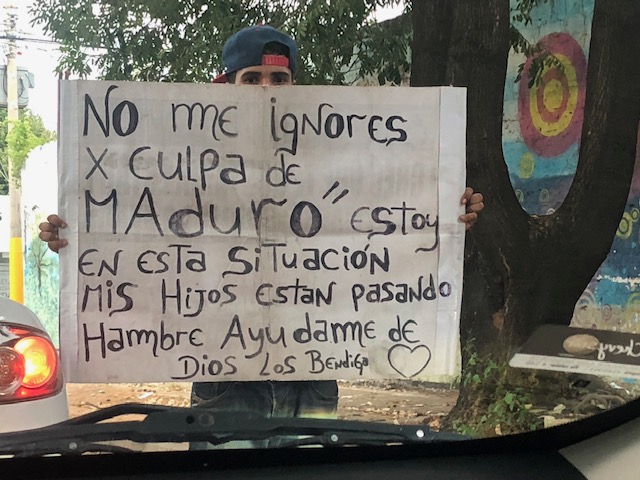 No me ignores
x culpa de
MAduro" estoy
en esta situación
Mis Hijos estan pasando
Hambre Ayudanme de
Dios Los Bendiga